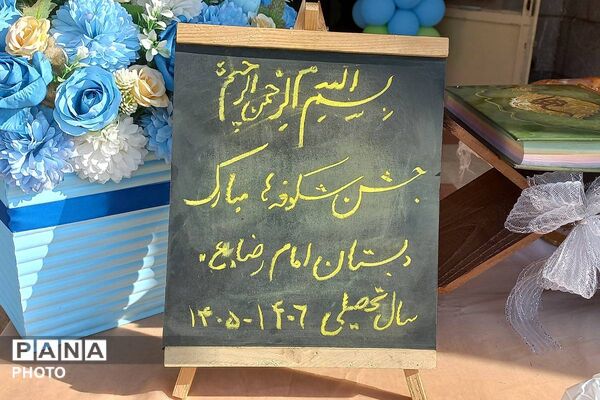 بسم الله الرحمن الرحیم
جشن شکوفه ها مبارک
دبستان امام رضا (ع)
سال تحصیلی ۱۴۰۶-۱۴۰۵
PANA
PHOTO